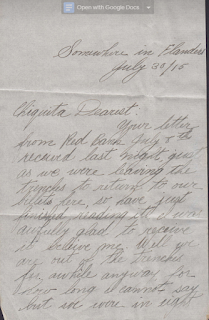 Open with Google Docs
Somewhere in Flanders
July 30/15
Chiquita Dearest:
Your letter
from Red Bank July 8th
received last night just
as we were leaving the
trenches to return to our
billets here, so have just
finished reading it & was
awfully glad to receive
it believe me. Well we
are out of the trenches
for awhile anyway for
how long I cannot say
but we were in eight